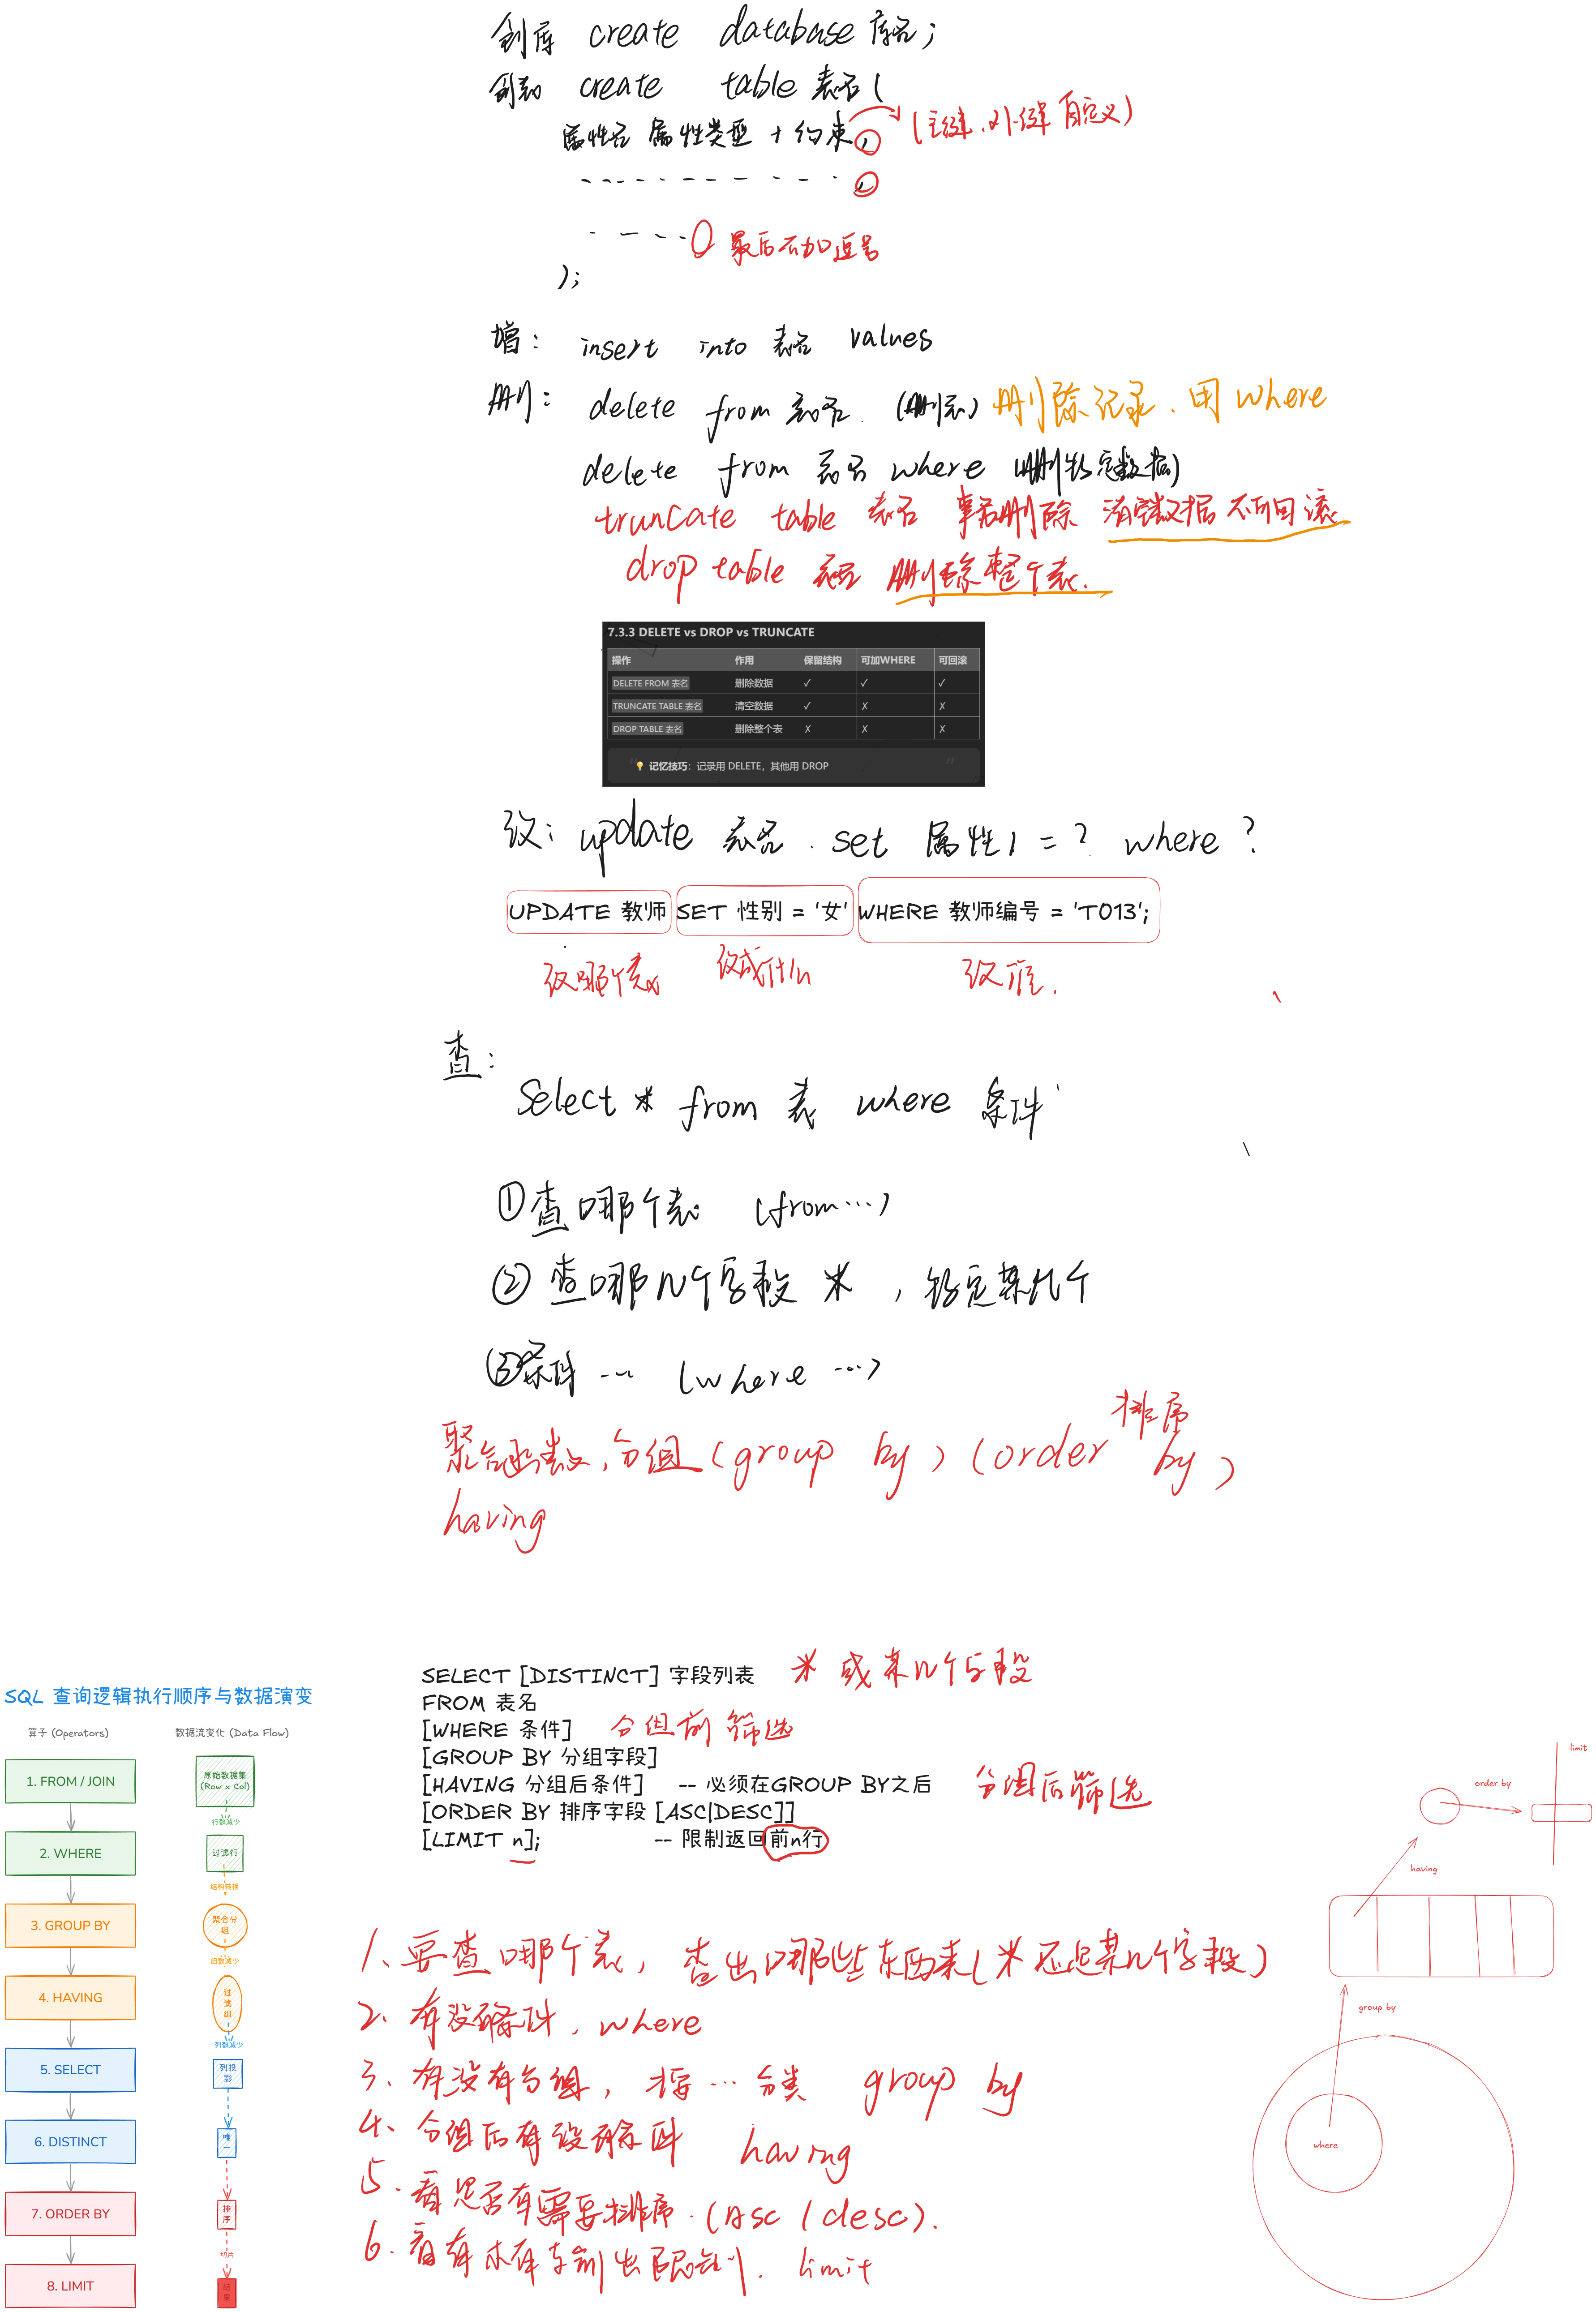 创库 create database 库名;
创表 create table 表名(
属性名 属性类型 + 约束, (主键、外键 自定义)
最后不加逗号
);
增: insert into 表名 values
删: delete from 表名. (删表) 删除记录. 用 where
delete from 表名 where (删特定数据)
truncate table 表名 删除 清空数据 不可回滚
drop table 表名 删除整个表.
7.3.3 DELETE vs DROP vs TRUNCATE
操作 作用 保留结构 可加WHERE 可回滚
DELETE FROM 表名 删除数据 ✓ ✓ ✓
TRUNCATE TABLE 表名 清空数据 ✓ ✗ ✗
DROP TABLE 表名 删除整个表 ✗ ✗ ✗
💡 记忆技巧：记录用 DELETE，其他用 DROP
改: update 表名. set 属性1 = ? where ?
UPDATE 教师 SET 性别 = '女' WHERE 教师编号 = 'T013';
改哪个表 改成什么 改谁.
查:
Select * from 表 where 条件
①查哪个表 (from…)
② 查哪几个字段 * , 指定某几个
③条件 … (where …)
排序
聚合函数, 分组 (group by) (order by)
having
SELECT [DISTINCT] 字段列表 * 或某几个字段
FROM 表名
[WHERE 条件] 分组前筛选
[GROUP BY 分组字段]
[HAVING 分组后条件] -- 必须在GROUP BY之后 分组后筛选
[ORDER BY 排序字段 [ASC|DESC]]
[LIMIT n]; -- 限制返回前n行
SQL 查询逻辑执行顺序与数据演变
算子 (Operators)
数据流变化 (Data Flow)
1. FROM / JOIN
2. WHERE
3. GROUP BY
4. HAVING
5. SELECT
6. DISTINCT
7. ORDER BY
8. LIMIT
原始数据集
(Row x Col)
行数减少
过滤行
结构转换
聚合分
组
组数减少
过
滤
组
列数减少
列投
影
唯
一
排
序
切片
结
果
1、要查哪个表, 查出哪些东西来(* 还是某几个字段)
2、有没有条件, where
3、有没有分组, 按…分类 group by
4、分组后有没有条件 having
5.看是否有需要排序.(Asc / desc).
6.看有没有输出限制. limit
limit
order by
having
group by
where